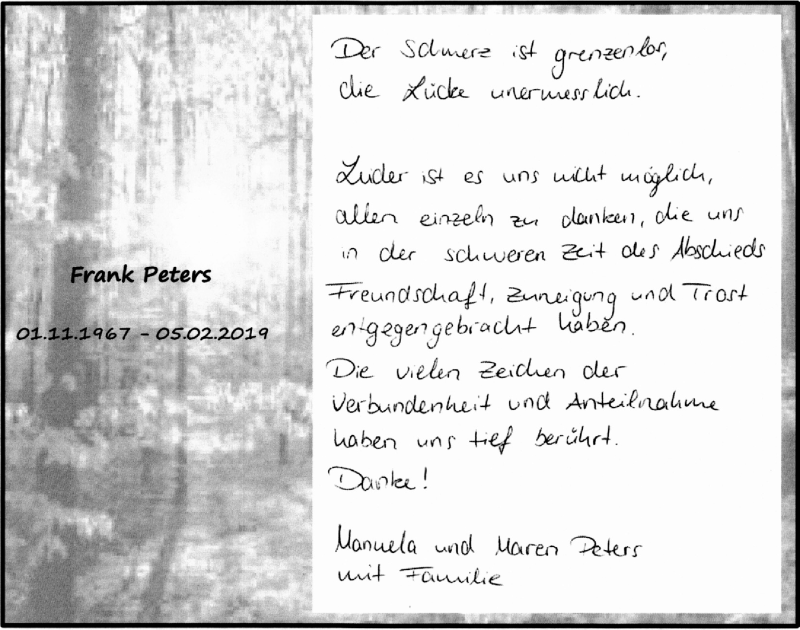 Frank Peters
01.11.1967 - 05.02.2019
Der Schmerz ist grenzenlos,
die Lücke unermesslich.
Leider ist es uns nicht möglich,
allen einzeln zu danken, die uns
in der schweren Zeit des Abschieds
Freundschaft, Zuneigung und Trost
entgegengebracht haben.
Die vielen Zeichen der
Verbundenheit und Anteilnahme
haben uns tief berührt.
Danke!
Manuela und Maren Peters
mit Familie